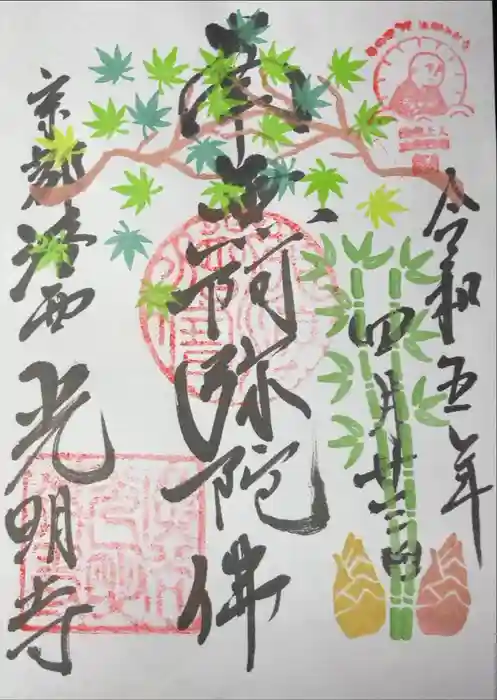 令和五年
四月廿二日
南無阿弥陀佛
京都洛西
光明寺